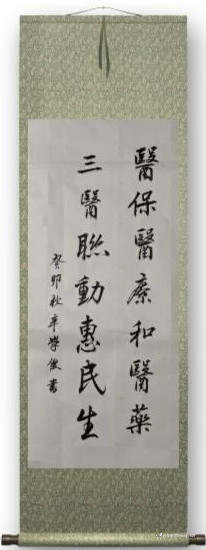 醫保醫療和醫藥
三醫聯動惠民生
癸卯秋辛學俊書